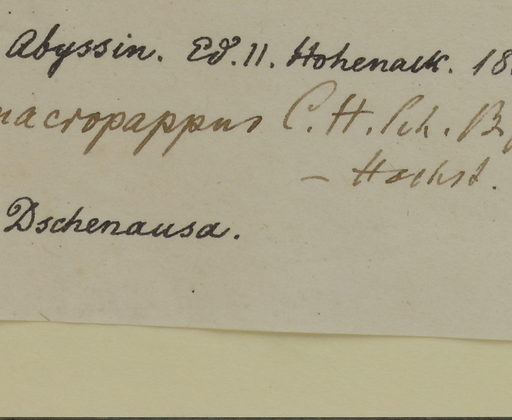 Abyssin. Ed. II. Hohenack. 18
macropappus C. H. Sch. B
– Hochst.
Dschenausa.